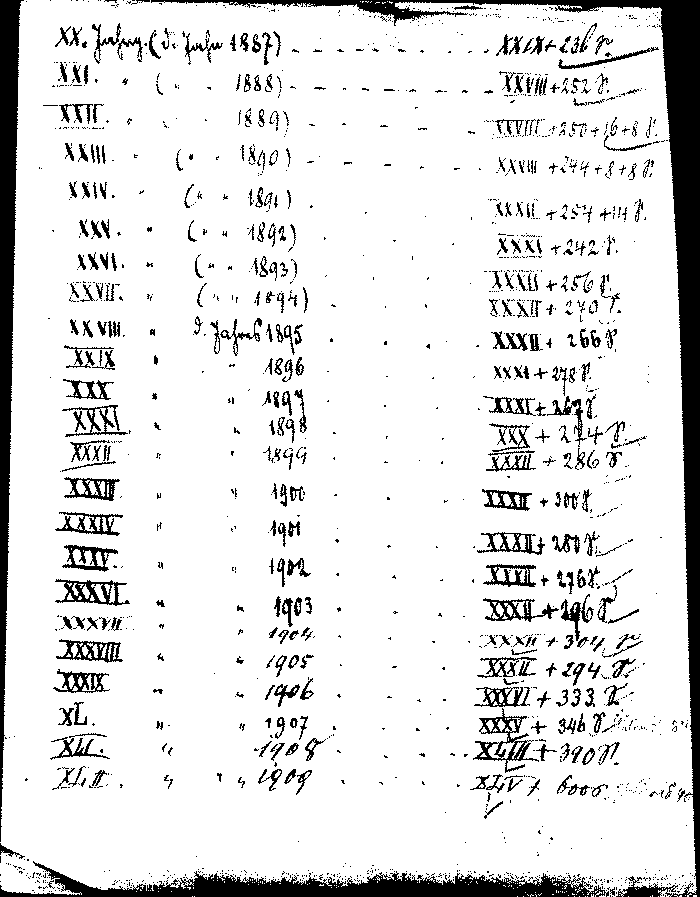 XX. Jahrg. (d. Jahr 1887) - - - - - XXIX + 236 S.
XXI. " ( " . 1888) - - - - - - XXVIII + 252 S.
XXII. " 1889) - - - - XXVIII + 250 + 16 + 8 S.
XXIII " ( " " 1890) - - - - XXVIII + 244 + 8 + 8 S.
XXIV. " ( " " 1891) . XXXII + 254 + 14 S.
XXV. " ( " " 1892) XXXI + 242 S.
XXVI. " ( " " 1893) XXXII + 256 S.
XXVII. " ( " " 1894) XXXII + 270 S.
XXVIII " d. Jahres 1895 XXXII + 266 S.
XXIX " " 1896 XXXI + 278 S.
XXX " " 1897 XXXI + 267 S.
XXXI " " 1898 XXX + 274 S.
XXXII " " 1899 XXXII + 286 S.
XXXIII " " 1900 XXXII + 300 S.
XXXIV " " 1901 XXXII + 280 S.
XXXV " " 1902 XXXII + 276 S.
XXXVI " " 1903 XXXII + 296 S.
XXXVII " " 1904 XXXII + 304 S.
XXXVIII " " 1905 XXXII + 294 S.
XXXIX " " 1906 XXXVI + 333 S.
XL. " " 1907 XXXV + 346 S.
XLI. " " 1908 XLIII + 390 S.
XLII . " " " 1909 XLIV +